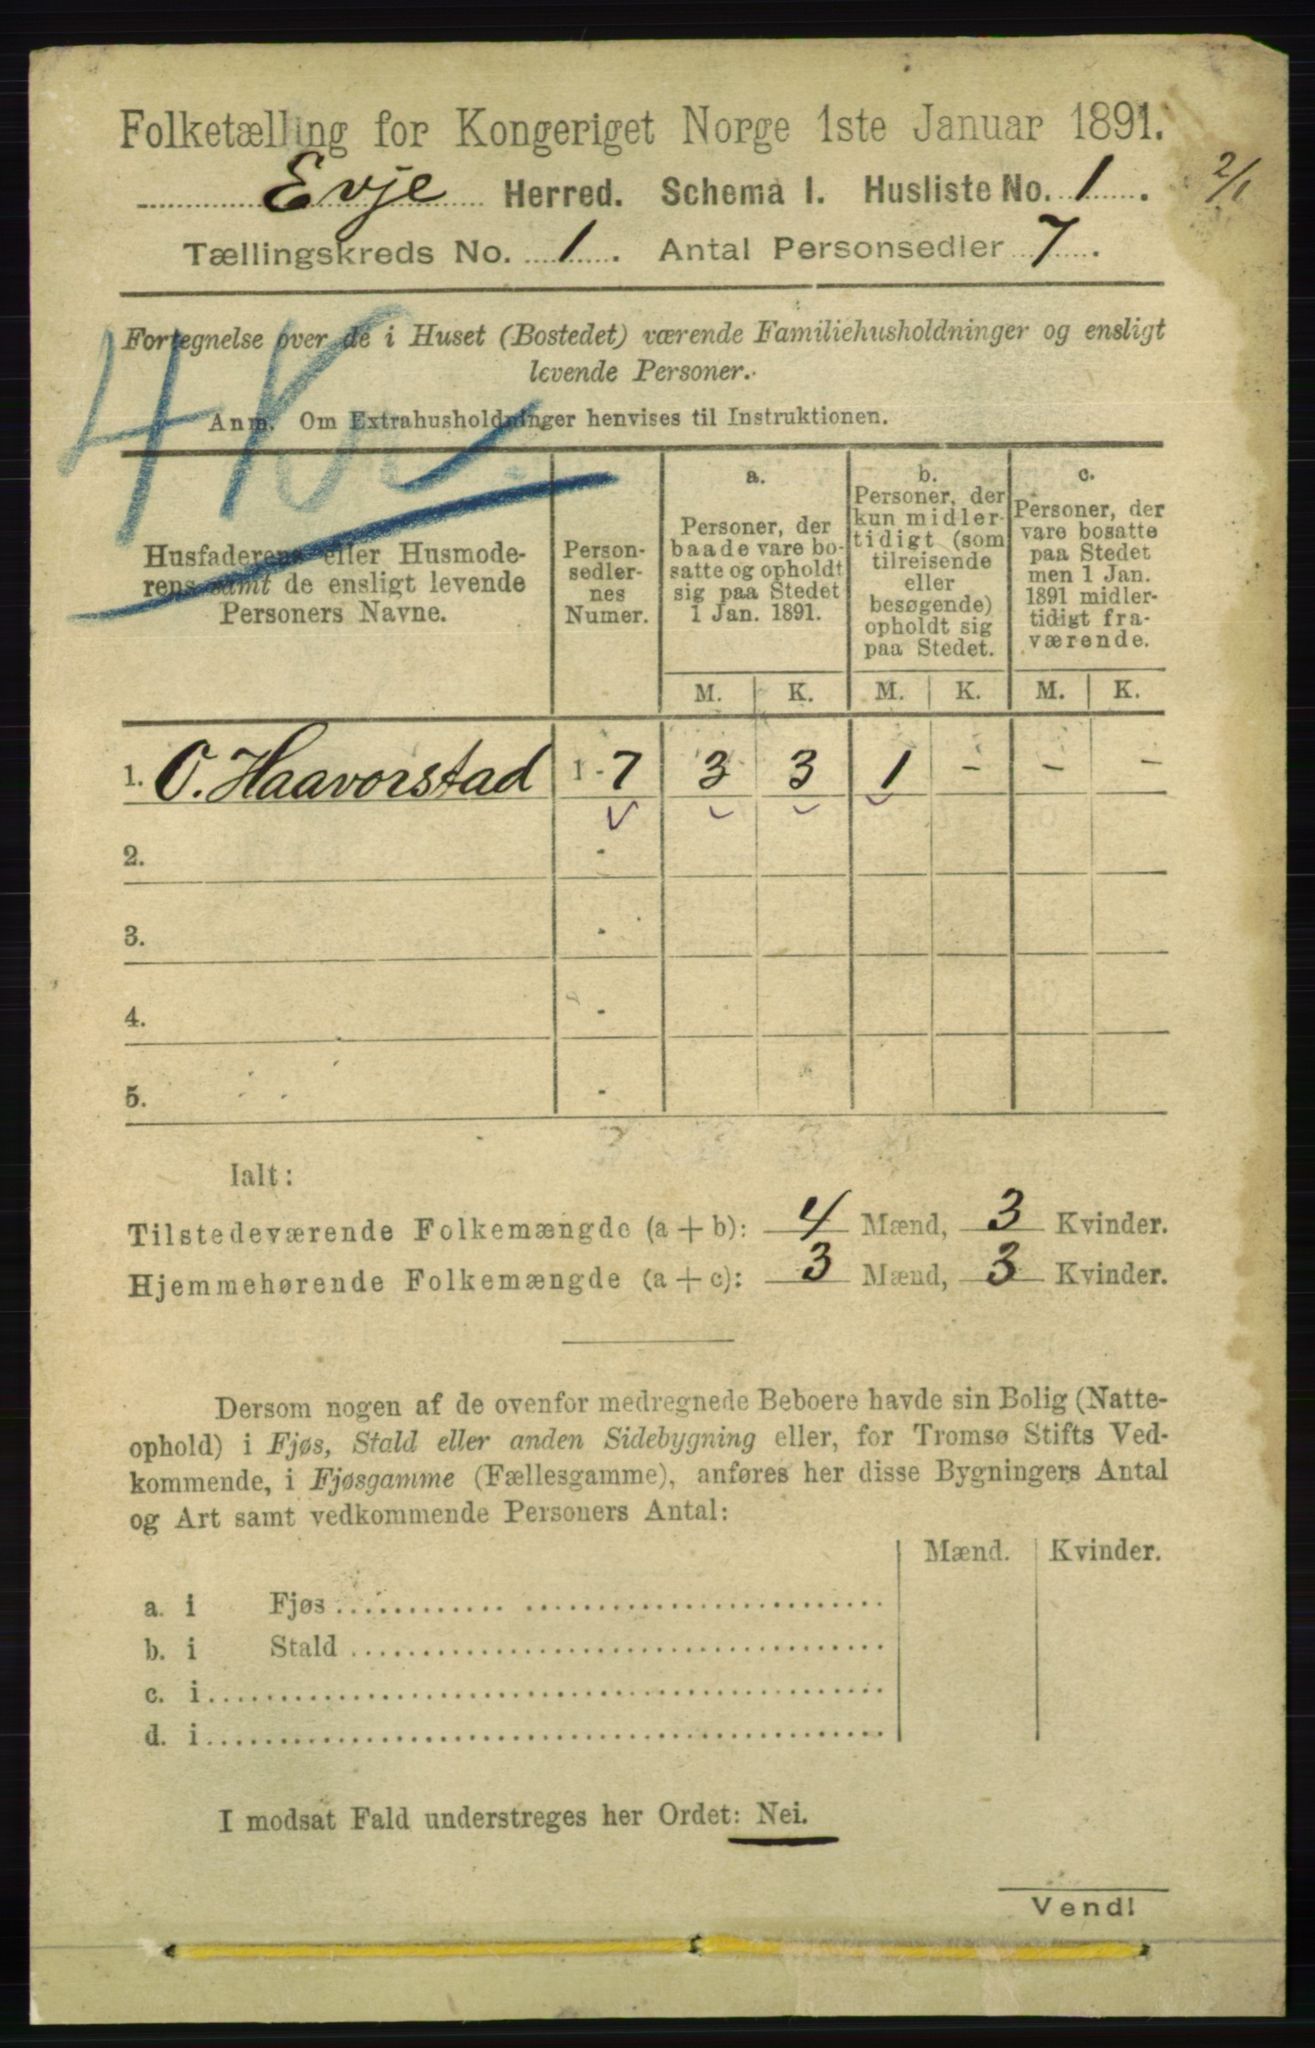 Folketælling for Kongeriget Norge 1ste Januar 1891.
Evje Herred. Schema I. Husliste No. 1.
2/1
Tællingskreds No. 1. Antal Personsedler 7.
Fortegnelse over de i Huset (Bostedet) værende Familiehusholdninger og ensligt
levende Personer.
Anm. Om Extrahusholdninger henvises til Instruktionen.
Husfaderens eller Husmode-
rens samt de ensligt levende
Personers Navne.
Person-
sedler-
nes
Numer.
a.
Personer, der
baade vare bo-
satte og opholdt
sig paa Stedet
1 Jan. 1891.
b.
Personer, der
kun midler-
tidigt (som
tilreisende
eller
besøgende)
opholdt sig
paa Stedet.
c.
Personer, der
vare bosatte
paa Stedet
men 1 Jan.
1891 midler-
tidigt fra-
værende.
M. K. M. K. M. K.
1. O. Haavorstad 1 - 7 3 3 1 - - -
2. -
3. -
4. -
5. -
Ialt:
Tilstedeværende Folkemængde (a + b): 4 Mænd, 3 Kvinder.
Hjemmehørende Folkemængde (a + c): 3 Mænd, 3 Kvinder.
Dersom nogen af de ovenfor medregnede Beboere havde sin Bolig (Natte-
ophold) i Fjøs, Stald eller anden Sidebygning eller, for Tromsø Stifts Ved-
kommende, i Fjøsgamme (Fællesgamme), anføres her disse Bygningers Antal
og Art samt vedkommende Personers Antal:
Mænd. Kvinder.
a. i Fjøs
b. i Stald
c. i
d. i
I modsat Fald understreges her Ordet: Nei.
Vend!